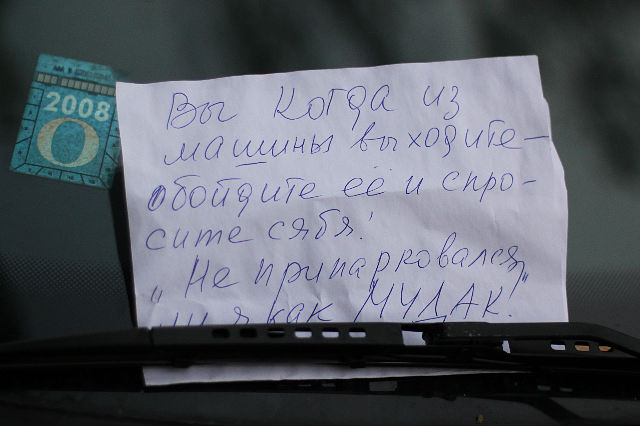 2008
О
Вы когда из
машины выходите–
обойдите её и спро–
сите сябя!
„Не припарковался
ли я как МУДАК!"